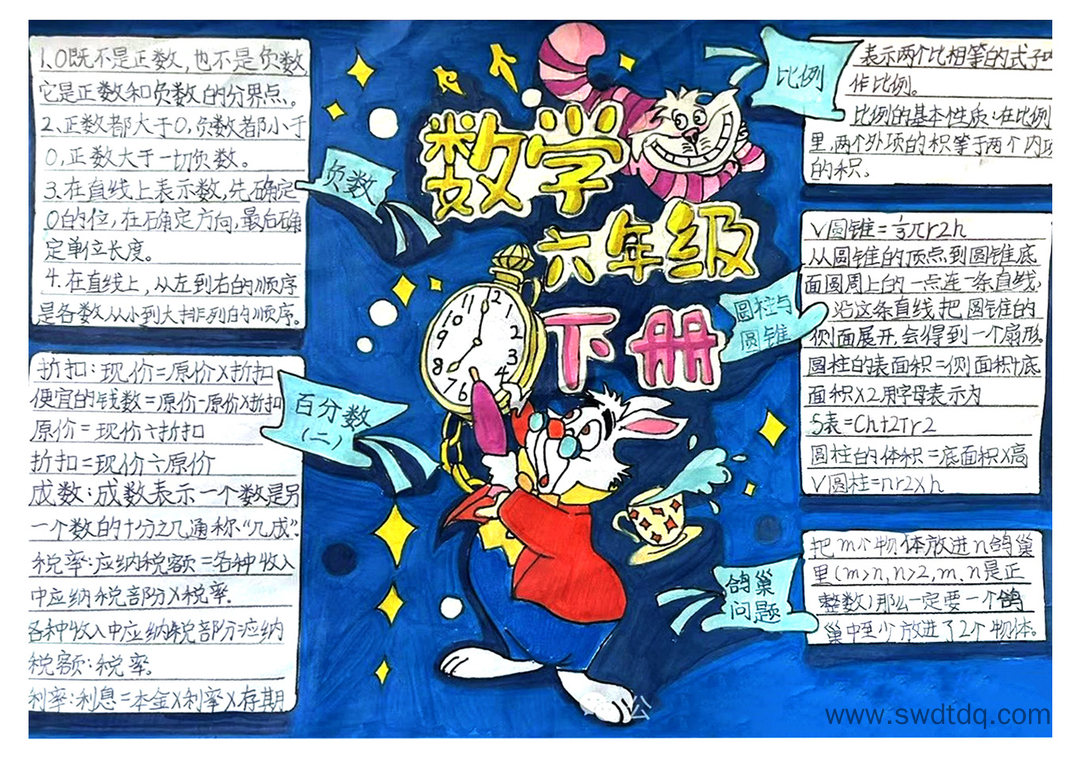 数学
六年级
下册
负数
1.0既不是正数,也不是负数
它是正数和负数的分界点。
2.正数都大于0,负数都小于
0,正数大于一切负数。
3.在直线上表示数,先确定
0的位,在确定方向,最后确
定单位长度。
4.在直线上,从左到右的顺序
是各数从小到大排列的顺序。
百分数
(二)
折扣:现价=原价×折扣
便宜的钱数=原价-原价×折扣
原价=现价÷折扣
折扣=现价÷原价
成数:成数表示一个数是另
一个数的十分之几通称“几成”.
税率:应纳税额=各种收入
中应纳税部分×税率.
各种收入中应纳税部分:应纳
税额:税率.
利率:利息=本金×利率×存期
比例
表示两个比相等的式子叫
作比例。
比例的基本性质:在比例
里,两个外项的积等于两个内项
的积。
圆柱与
圆锥
V圆锥=⅓πr2h
从圆锥的顶点到圆锥底
面圆周上的一点连一条直线,
沿这条直线把圆锥的
侧面展开,会得到一个扇形.
圆柱的表面积=侧面积+底
面积×2用字母表示为
S表=Ch+2πr2
圆柱的体积=底面积×高
V圆柱=πr2×h
鸽巢
问题
把m个物体放进n鸽巢
里(m>n,n>2,m、n是正
整数)那么一定要一个鸽
巢中至少放进了2个物体。
12
1
2
3
4
6
7
8
9
10
11
公
www.swdtdq.com